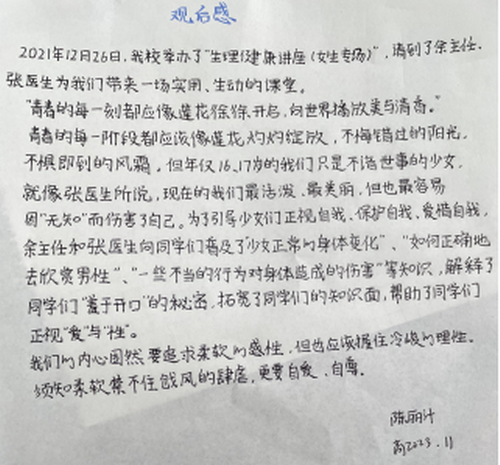 观后感
2021年12月26日，我校举办了“生理健康讲座（女生专场）”，请到了余主任、
张医生为我们带来一场实用、生动的课堂。
“青春的每一刻都应像莲花徐徐开启，向世界播放美与清香。”
青春的每一阶段都应该像莲花灼灼绽放，不悔错过的阳光，
不惧即到的风霜，但年仅16、17岁的我们只是不谙世事的少女，
就像张医生所说，现在的我们最活泼、最美丽，但也最容易
因“无知”而伤害了自己。为了引导少女们正视自我、保护自我、爱惜自我，
余主任和张医生向同学们普及了“少女正常的身体变化”、“如何正确地
去欣赏男性”、“一些不当的行为对身体造成的伤害”等知识，解释了
同学们“羞于开口”的秘密，拓宽了同学们的知识面，帮助了同学们
正视“爱”与“性”。
我们的内心固然要追求柔软的感性，但也应该握住冷峻的理性。
须知柔软禁不住戗风的肆虐，更要自爱、自尊。
陈丽汁
高2023.11